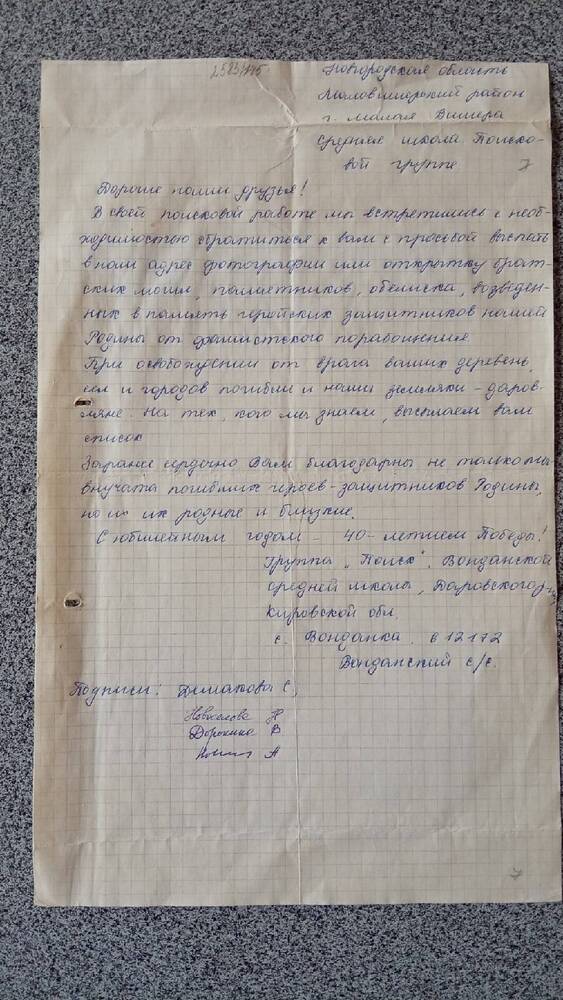 2585/175
Новгородская область
Маловишерский район
г. Малая Вишера
Средняя школа Поиско-
вой группе
7
Дорогие наши друзья!
В своей поисковой работе мы встретились с необ-
ходимостью обратиться к вам с просьбой выслать
в наш адрес фотографии или открытку брат-
ских могил, памятников, обелиска, возведен-
ных в память геройских защитников нашей
Родины от фашистского порабощения.
При освобождении от врага ваших деревень,
сел и городов погибли и наши земляки - даров-
ляне. На тех, кого мы знаем, высылаем вам
список
Заранее сердечно Вам благодарны не только мы
внучата погибших героев-защитников Родины,
но и их родные и близкие.
С юбилейным годом - 40-летием Победы!
Группа "Поиск", Вонданской
средней школы, Даровского
Кировской обл.
с. Вонданка. 612172
Вонданский с/с.
Подписи: С.
Новоселова
Дорохина В
А
7